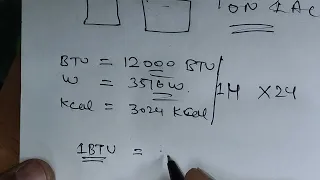 TON 1 AC
BTU = 12000 BTU
W = 3516 W.
Kcal = 3024 Kcal
1H × 24
1BTU =